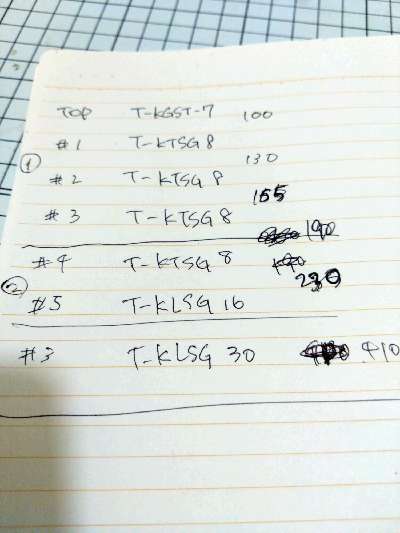 TOP T-KGST-7 100
#1 T-KTSG 8
130
①
#2 T-KTSG 8
155
#3 T-KTSG 8
190
#4 T-KTSG 8
230
②
#5 T-KLSG 16
#3 T-KLSG 30 410